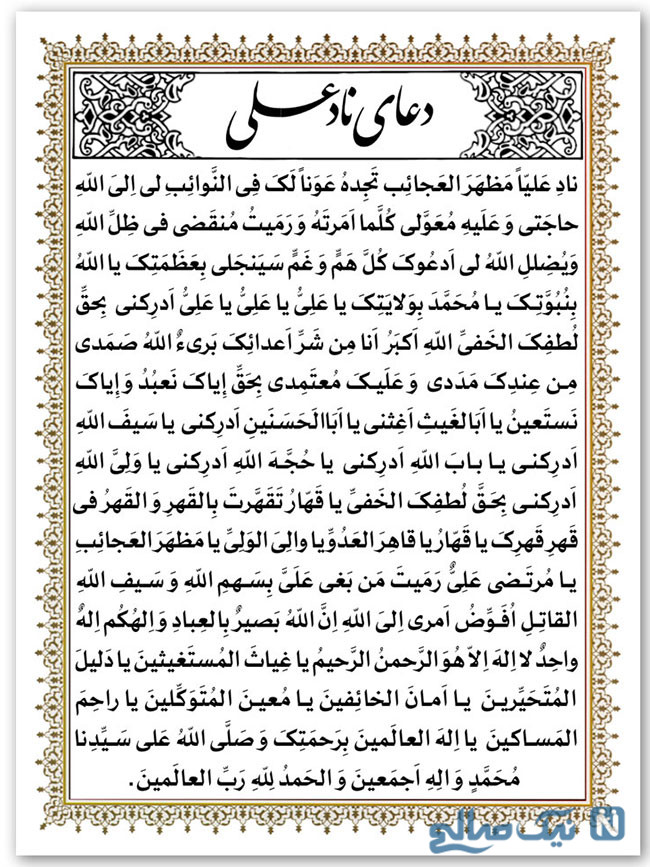 دعای ناد علی
نادِ عَلیّاً مَظهَرَ العَجائِبِ تَجِدهُ عَوناً لَکَ فِی النَّوائِبِ لی اِلیَ اللّهِ
حاجَتی وَ عَلَیهِ مُعَوَّلی کُلَّما اَمَرتَهُ وَ رَمَیتُ مُنقَضی فی ظِلِّ اللّهِ
وَیُضلِلِ اللّهُ لی اَدعُوکَ کُلَّ هَمٍّ وَ غَمٍّ سَیَنجَلی بِعَظَمَتِکَ یا اللّهُ
بِنُبُوَّتِکَ یا مُحَمَّدَ بِوِلایَتِکَ یا عَلِیُّ یا عَلِیُّ یا عَلِیُّ اَدرِکنی بِحَقِّ
لُطفِکَ الخَفیِّ اللّهِ اَکبَرُ اَنا مِن شَرِّ اَعدائِکَ بَریءٌ اللّهُ صَمَدی
مِن عِندِکَ مَدَدی وَ عَلَیکَ مُعتَمِدی بِحَقِّ إیاکَ نَعبُدُ وَ إیاکَ
نَستَعینُ یا اَبَالغَیثِ اَغِثنی یا اَبَاالحَسَنَینِ اَدرِکنی یا سَیفَ اللّهِ
اَدرِکنی یا بابَ اللّهِ اَدرِکنی یا حُجَّهَ اللّهِ اَدرِکنی یا وَلِیَّ اللّهِ
اَدرِکنی بِحَقَّ لُطفِکَ الخَفیِّ یا قَهّارُ تَقَهَّرتَ بِالقَهرِ وَ القَهرُ فی
قَهرِ قَهرِکَ یا قَهّارُ یا قاهِرَ العَدُوِّ یا والِیَ الوَلِیِّ یا مَظهَرَ العَجائِبِ
یا مُرتَضی عَلِیٌّ رَمَیتَ مَن بَغی عَلَیَّ بِسَهمِ اللّهِ وَ سَیفِ اللّهِ
القاتِلِ اُفَوِّضُ اَمری اِلَی اللّهِ اِنَّ اللّهُ بَصیرٌ بِالعِبادِ وَ اِلهُکُم اِلهٌ
واحِدٌ لا اِلهَ اِلاّ هُوَ الرَّحمنُ الرَّحیمُ یا غِیاثَ المُستَغیثینَ یا دَلیلَ
المُتَحَیِّرینَ یا اَمانَ الخائِفینَ یا مُعینَ المُتَوَکِّلینَ یا راحِمَ
المَساکینَ یا اِلهَ العالَمینَ بِرَحمَتِکَ وَ صَلَّی اللّهُ عَلی سَیِّدِنا
مُحَمَّدٍ وَ الِهِ اَجمَعینَ وَ الحَمدُ لِلّهِ رَبِّ العالَمینَ.
نیک صالحی N